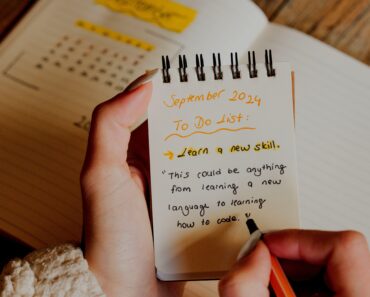 September 2024
To Do List:
→ Learn a new skill.
"This could be anything
from learning a new
language to learning
how to code."